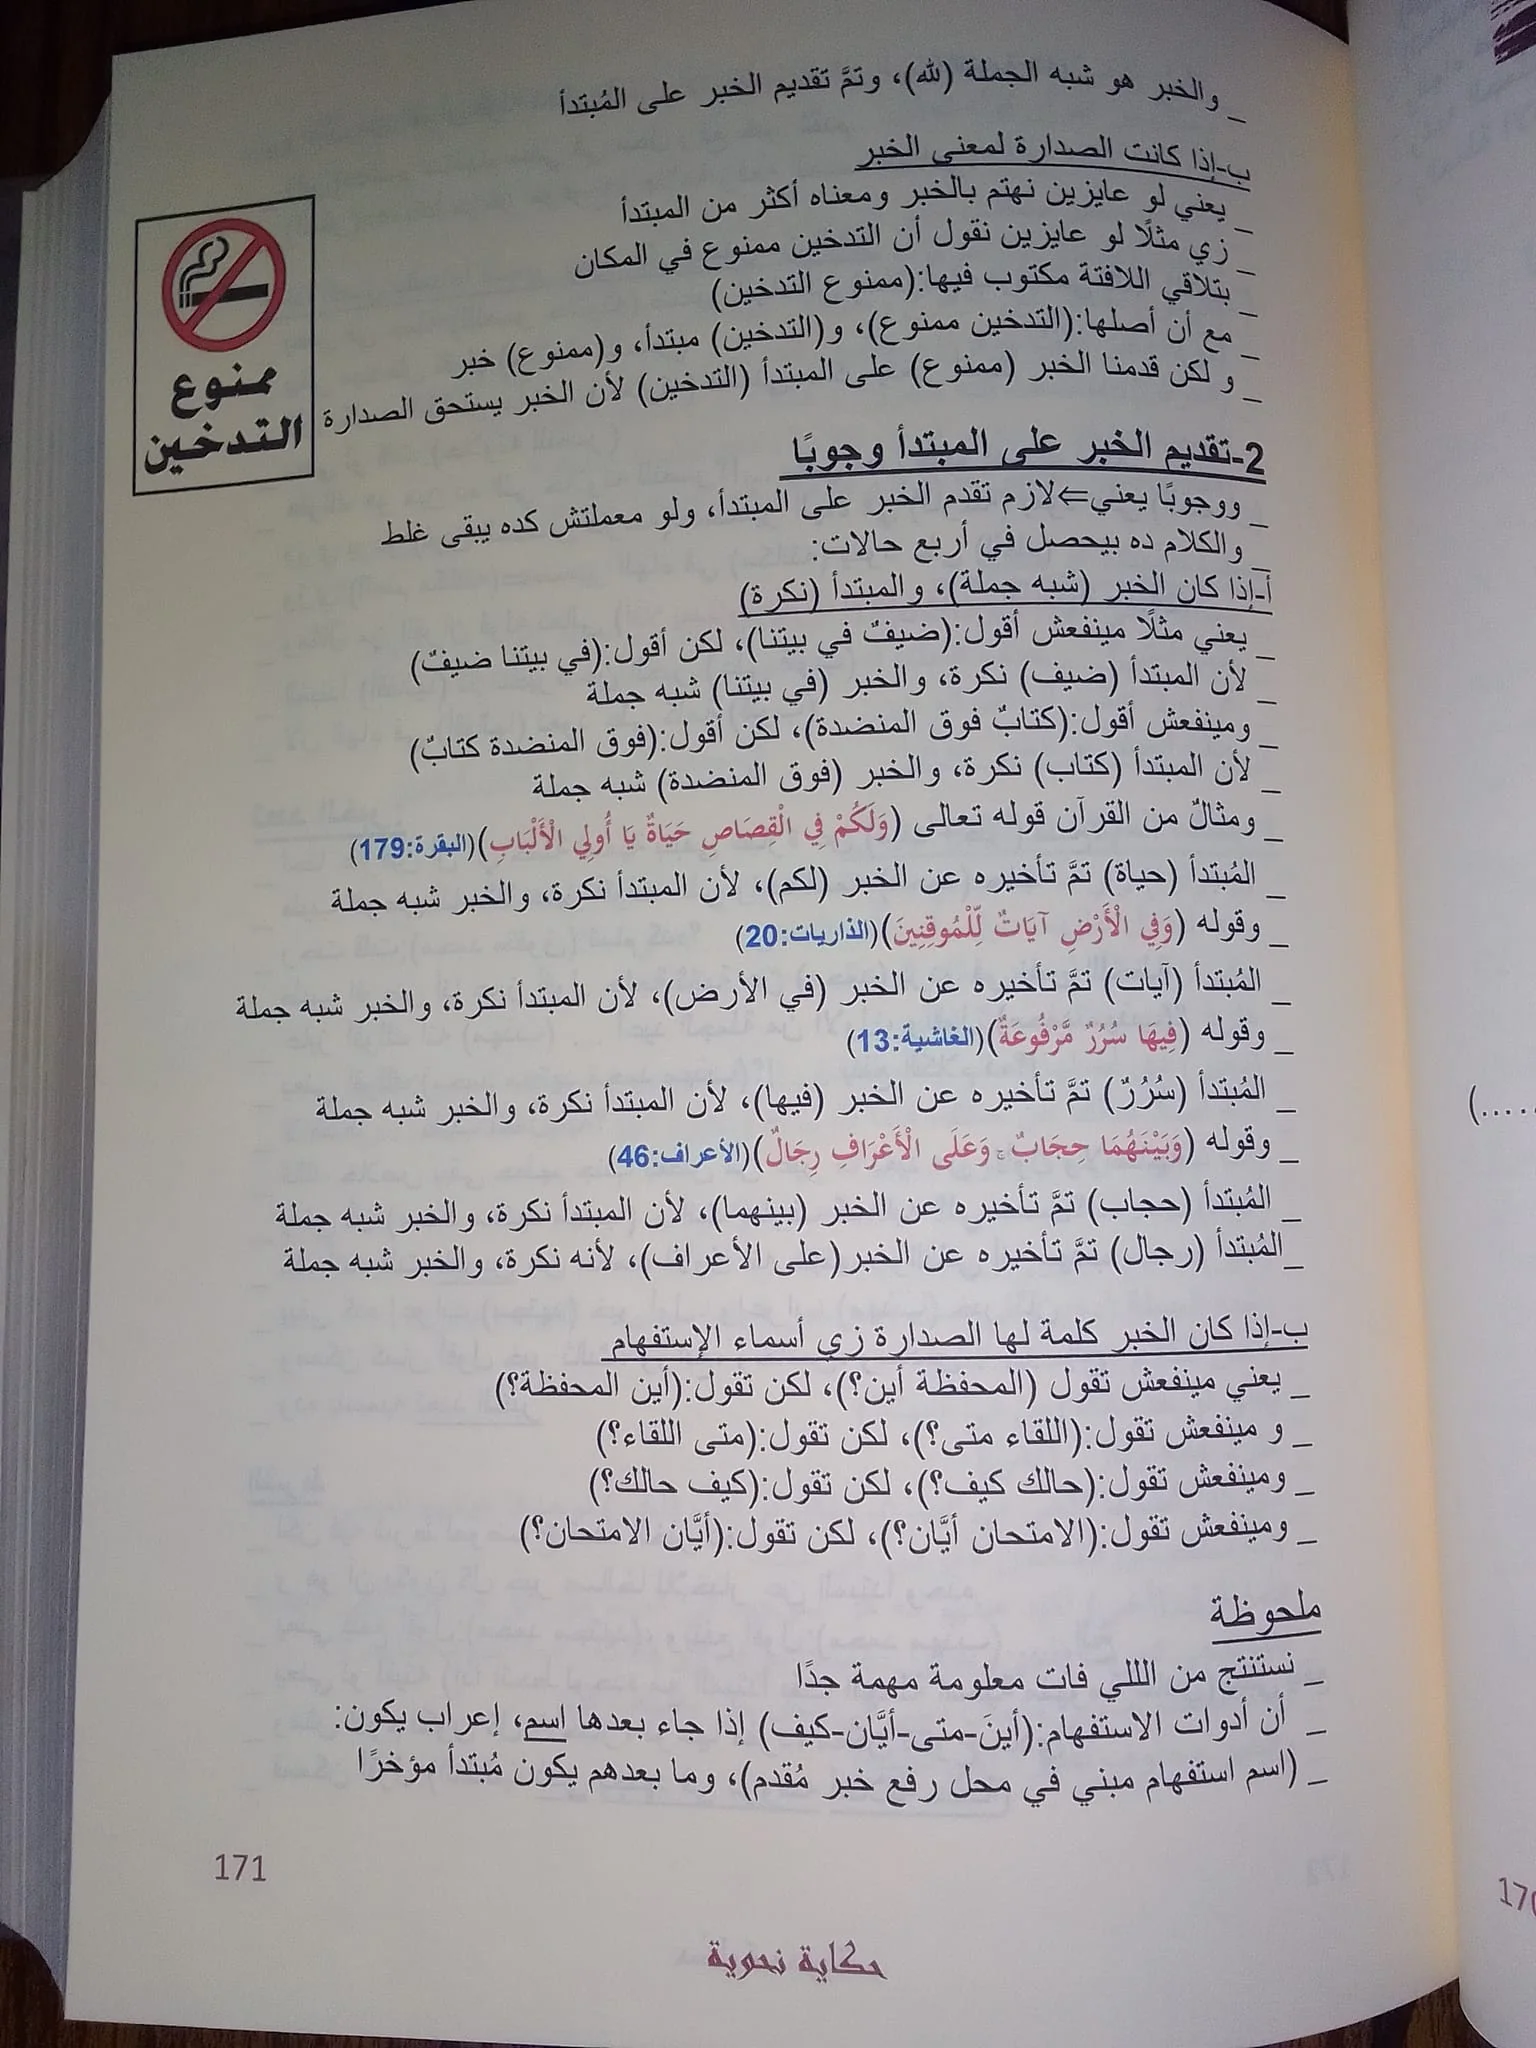 _ والخبر هو شبه الجملة (لله)، وتمَّ تقديم الخبر على المُبتدأ
ب-إذا كانت الصدارة لمعنى الخبر
_ يعني لو عايزين نهتم بالخبر ومعناه أكثر من المبتدأ
_ زي مثلًا لو عايزين نقول أن التدخين ممنوع في المكان
_ بتلاقي اللافتة مكتوب فيها:(ممنوع التدخين)
_ مع أن أصلها:(التدخين ممنوع)، و(التدخين) مبتدأ، و(ممنوع) خبر
_ و لكن قدمنا الخبر (ممنوع) على المبتدأ (التدخين) لأن الخبر يستحق الصدارة
ممنوع
التدخين
2-تقديم الخبر على المبتدأ وجوبًا
_ ووجوبًا يعني⇐لازم تقدم الخبر على المبتدأ، ولو معملتش كده يبقى غلط
_ والكلام ده بيحصل في أربع حالات:
أ-إذا كان الخبر (شبه جملة)، والمبتدأ (نكرة)
_ يعني مثلًا مينفعش أقول:(ضيفٌ في بيتنا)، لكن أقول:(في بيتنا ضيفٌ)
_ لأن المبتدأ (ضيف) نكرة، والخبر (في بيتنا) شبه جملة
_ ومينفعش أقول:(كتابٌ فوق المنضدة)، لكن أقول:(فوق المنضدة كتابٌ)
_ لأن المبتدأ (كتاب) نكرة، والخبر (فوق المنضدة) شبه جملة
_ ومثالٌ من القرآن قوله تعالى (وَلَكُمْ فِي الْقِصَاصِ حَيَاةٌ يَا أُولِي الْأَلْبَابِ)(البقرة:179)
_ المُبتدأ (حياة) تمَّ تأخيره عن الخبر (لكم)، لأن المبتدأ نكرة، والخبر شبه جملة
_ وقوله (وَفِي الْأَرْضِ آيَاتٌ لِّلْمُوقِنِينَ)(الذاريات:20)
_ المُبتدأ (آيات) تمَّ تأخيره عن الخبر (في الأرض)، لأن المبتدأ نكرة، والخبر شبه جملة
_ وقوله (فِيهَا سُرُرٌ مَّرْفُوعَةٌ)(الغاشية:13)
_ المُبتدأ (سُرُرٌ) تمَّ تأخيره عن الخبر (فيها)، لأن المبتدأ نكرة، والخبر شبه جملة
_ وقوله (وَبَيْنَهُمَا حِجَابٌ ۚ وَعَلَى الْأَعْرَافِ رِجَالٌ)(الأعراف:46)
_ المُبتدأ (حجاب) تمَّ تأخيره عن الخبر (بينهما)، لأن المبتدأ نكرة، والخبر شبه جملة
_ المُبتدأ (رجال) تمَّ تأخيره عن الخبر(على الأعراف)، لأنه نكرة، والخبر شبه جملة
ب-إذا كان الخبر كلمة لها الصدارة زي أسماء الإستفهام
_ يعني مينفعش تقول (المحفظة أين؟)، لكن تقول:(أين المحفظة؟)
_ و مينفعش تقول:(اللقاء متى؟)، لكن تقول:(متى اللقاء؟)
_ ومينفعش تقول:(حالك كيف؟)، لكن تقول:(كيف حالك؟)
_ ومينفعش تقول:(الامتحان أيَّان؟)، لكن تقول:(أيَّان الامتحان؟)
ملحوظة
_ نستنتج من الللي فات معلومة مهمة جدًا
_ أن أدوات الاستفهام:(أينَ-متى-أيَّان-كيف) إذا جاء بعدها اسم، إعراب يكون:
_ (اسم استفهام مبني في محل رفع خبر مُقدم)، وما بعدهم يكون مُبتدأ مؤخرًا
171
حكاية نحوية
(.....